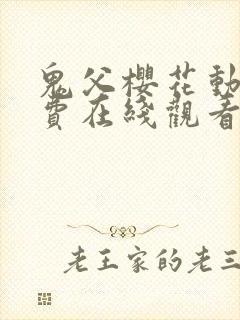 鬼父櫻花動
費在綫觀看
老王家的老三